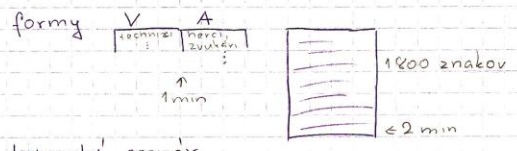 formy V A
technici herci,
⋮ zvukári
⋮
1 min
1800 znakov
← 2 min
scenár